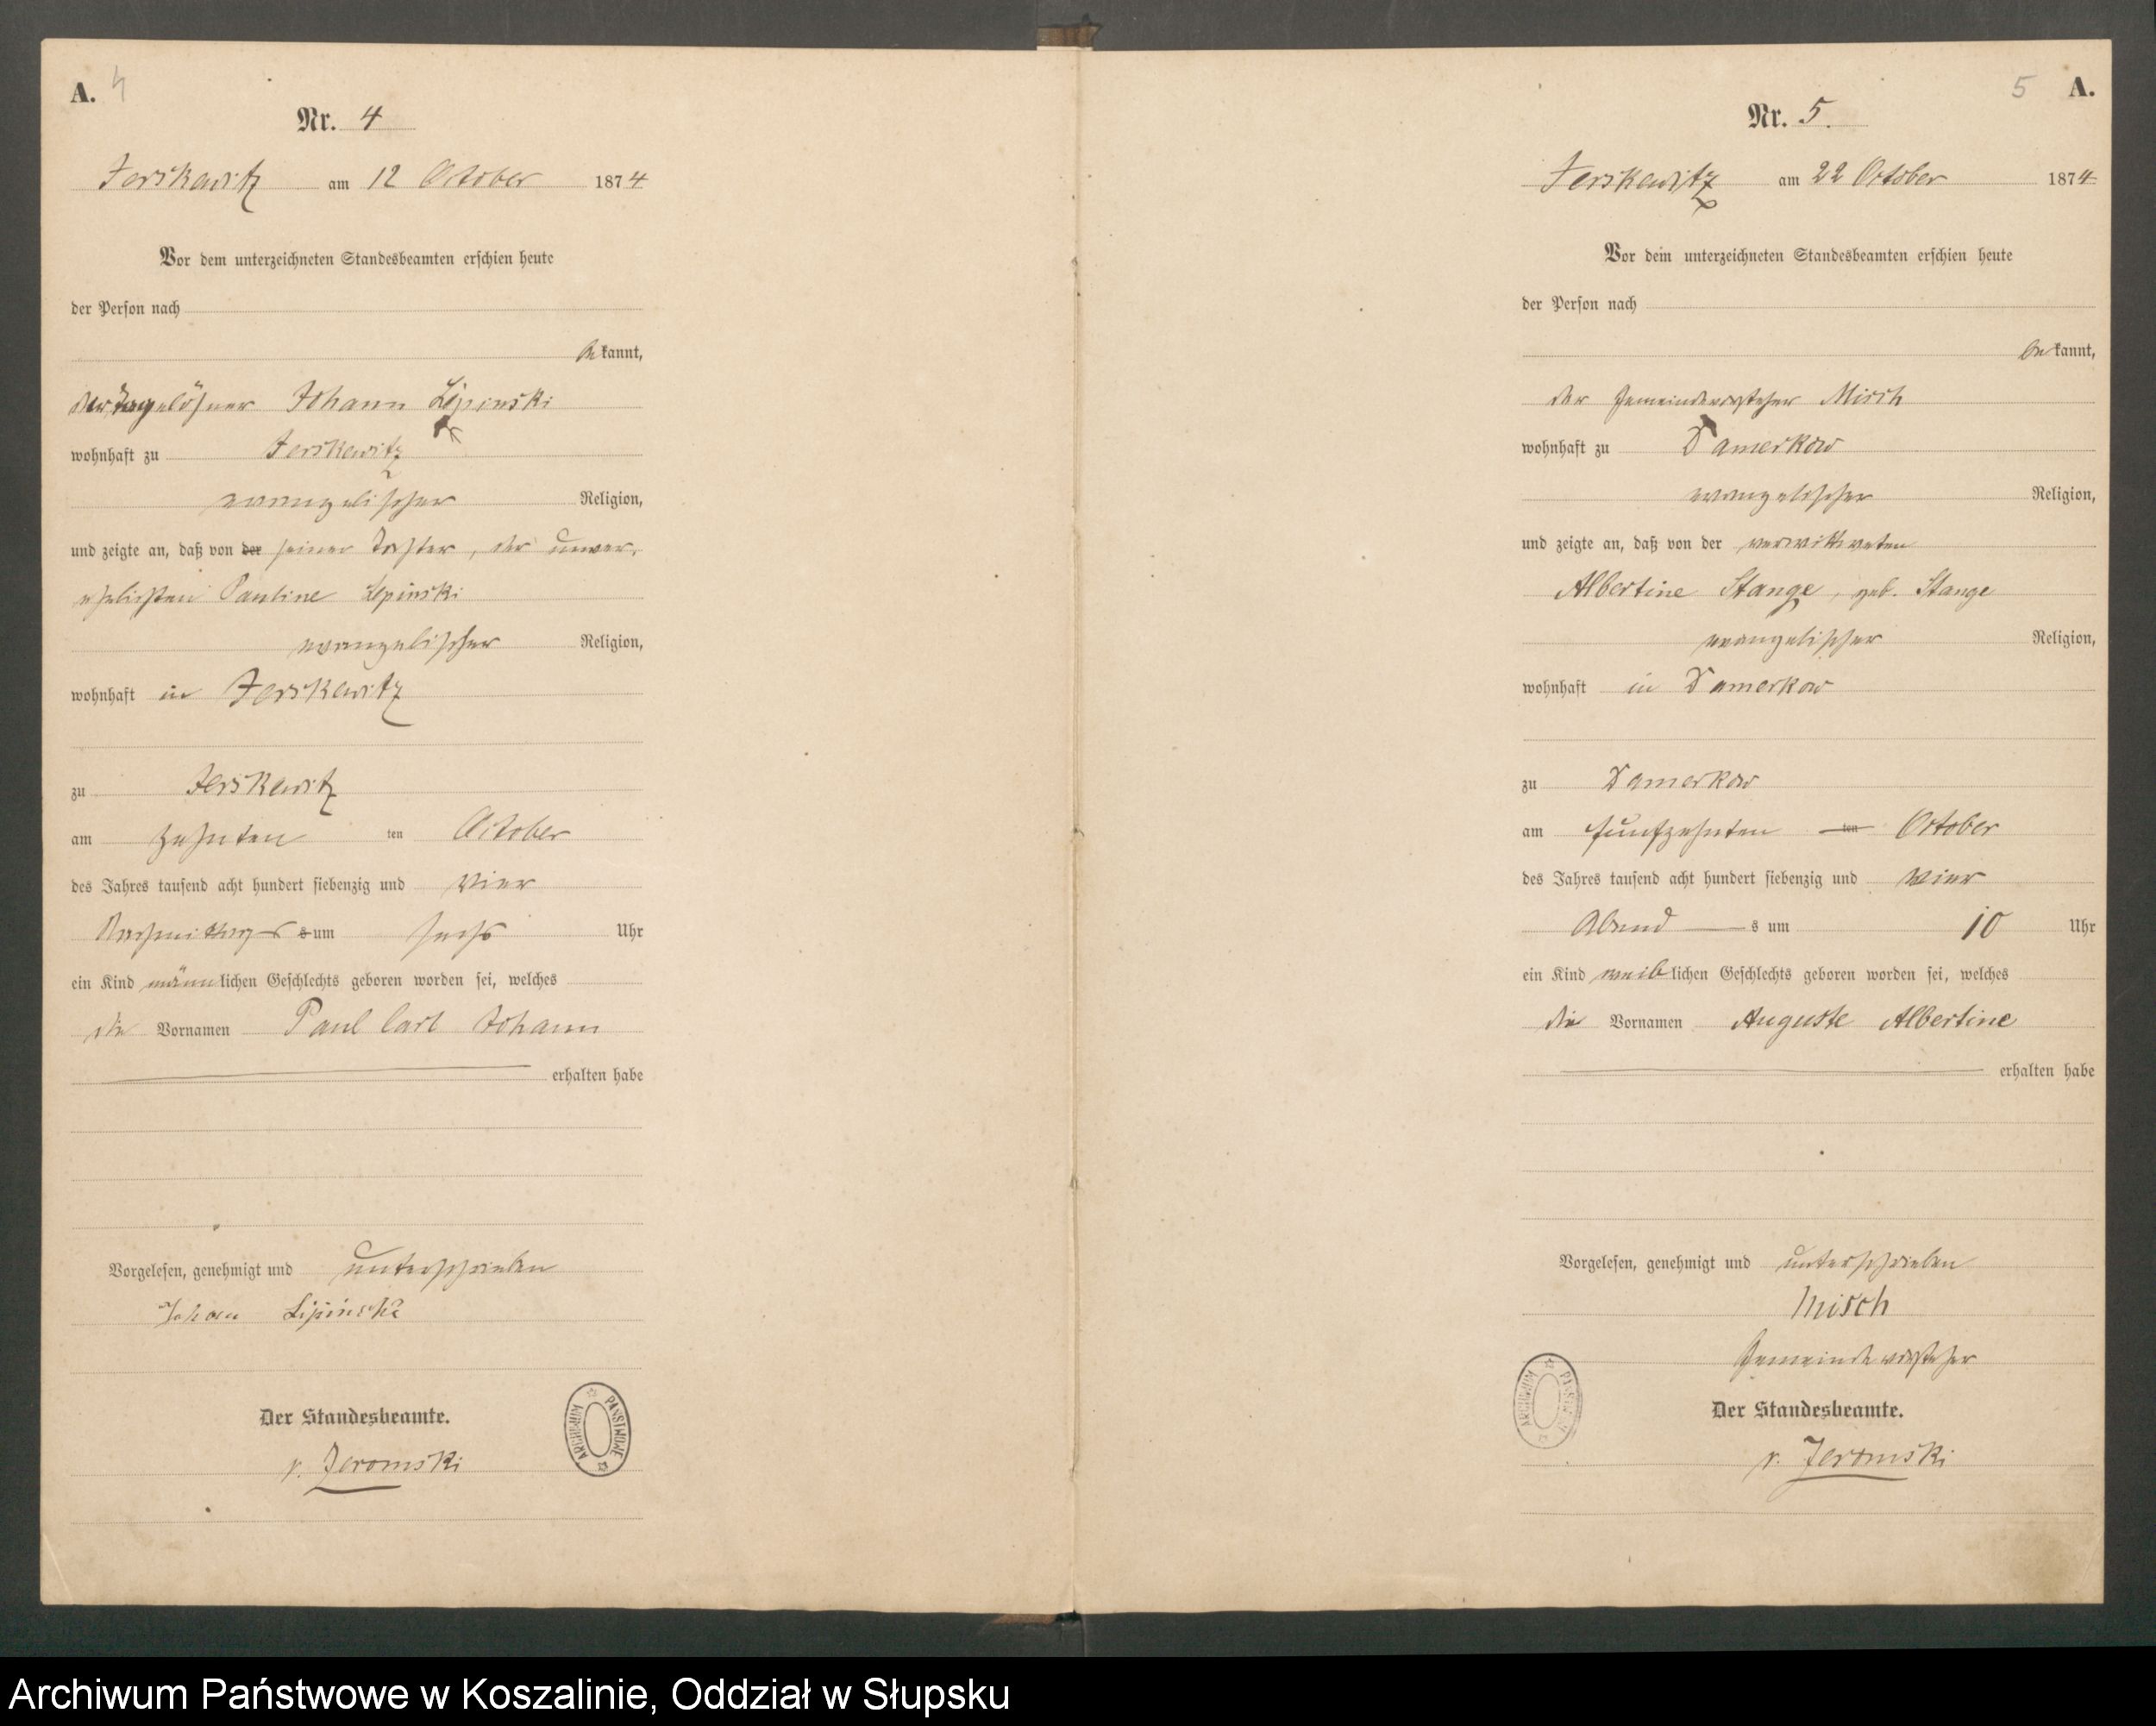 A. 4
Nr. 4
Jerskewitz am 12 October 1874
Vor dem unterzeichneten Standesbeamten erschien heute
der Person nach
bekannt,
der Tagelöhner Johann Lipinski
wohnhaft zu Jerskewitz
evangelischer Religion,
und zeigte an, daß von der seiner Tochter, der unver-
ehelichten Pauline Lipinski
evangelischer Religion,
wohnhaft in Jerskewitz
zu Jerskewitz
am zehnten ten October
des Jahres tausend acht hundert siebenzig und vier
Nachmittags um sechs Uhr
ein Kind männlichen Geschlechts geboren worden sei, welches
die Vornamen Paul Carl Johann
erhalten habe
Vorgelesen, genehmigt und unterschrieben
Johann Lipinski
Der Standesbeamte.
v. Jeromski
ARCHIWUM PAŃSTWOWE
5 A.
Nr. 5.
Jerskewitz am 22 October 1874
Vor dem unterzeichneten Standesbeamten erschien heute
der Person nach
bekannt,
der Gemeindevorsteher Misch
wohnhaft zu Damerkow
evangelischer Religion,
und zeigte an, daß von der verwittweten
Albertine Stange, geb. Stange
evangelischer Religion,
wohnhaft in Damerkow
zu Damerkow
am fünfzehnten ten October
des Jahres tausend acht hundert siebenzig und vier
Abend s um 10 Uhr
ein Kind weiblichen Geschlechts geboren worden sei, welches
die Vornamen Auguste Albertine
erhalten habe
Vorgelesen, genehmigt und unterschrieben
Misch
Gemeindevorsteher
Der Standesbeamte.
v. Jeromski
ARCHIWUM PAŃSTWOWE
Archiwum Państwowe w Koszalinie, Oddział w Słupsku